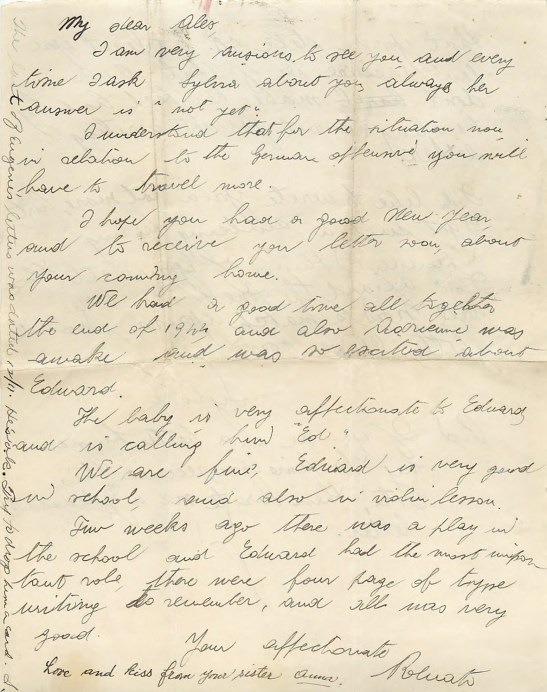 My dear Alex
I am very ansions, to see you and every
time I ask Sylvia about you always her
answer is "not yet".
I understand that for the situation now
in relation to the German offensive you will
have to travel more.
I hope you had a good New Year
and to receive you letter soon, about
your coming home.
We had a good time all togehter
the end of 1944 and also Adrienne was
awake and was so excited about
Edward.
The baby is very affectionate to Edward,
and is calling him "Ed"
We are fine, Edward is very good
in school, and also in violin lesson.
Few weeks ago there was a play in
the school and Edward had the most impor
tant role, there were four page of type
writing to remember, and all was very
good.
Your affectionate
Love and kiss from your sister Anna.
The last of Eugene's letters was dated 12/11. He's in Try to drop him a card.